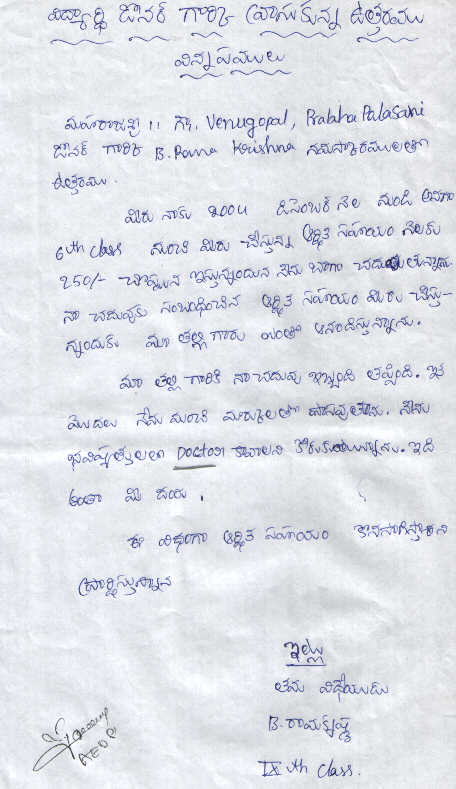 విద్యార్థి డోనర్ గారికి వ్రాసుకున్న ఉత్తరము
విన్నపములు
మహారాజశ్రీ !! గౌ. Venugopal, Prabha Palasani
డోనర్ గారికి B. Rama Krishna నమస్కారములతో
ఉత్తరము.
మీరు నాకు 2004 డిసెంబర్ నెల నుండి అనగా
6th class నుంచి మీరు చేస్తున్న ఆర్థిక సహాయం నెలకు
250/- చొప్పున ఇస్తున్నందున నేను బాగా చదువుతున్నాను.
నా చదువుకు సంబంధించిన ఆర్థిక సహాయం మీరు చేస్తు-
న్నందుకు మా తల్లి గారు ఎంతో ఆనందిస్తున్నారు.
మా తల్లి గారికి నా చదువు ఇబ్బంది తప్పింది. ఇక
మొదలు నేను మంచి మార్కులతో పాసవుతాను. నేను
భవిష్యత్తులో Doctor కావాలని కోరుకుంటున్నాను. ఇది
అంతా మీ దయ.
ఈ విధంగా ఆర్థిక సహాయం కొనసాగిస్తారని
ప్రార్థిస్తున్నాను
ఇట్లు
తమ విధేయుడు
B. రామకృష్ణ
IX th class.
AEDP